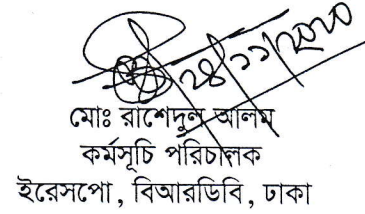 ২৪/১১/২০২০
মোঃ রাশেদুল আলম
কর্মসূচি পরিচালক
ইরেসপো, বিআরডিবি, ঢাকা